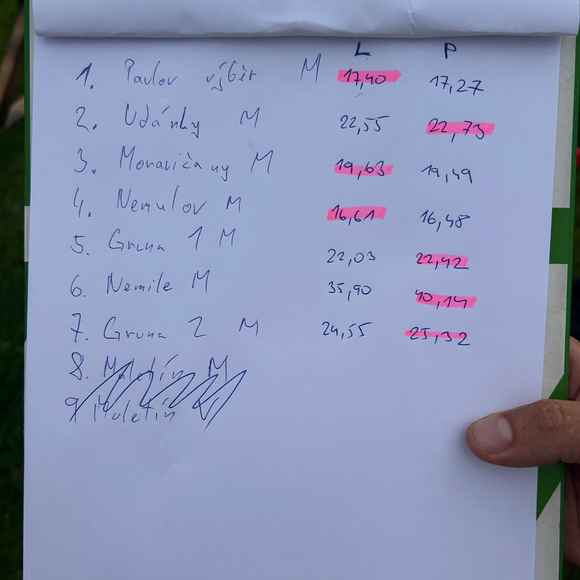 L P
1. Pavlov výběr M 17,40 17,27
2. Udánky M 22,55 22,73
3. Moravičany M 19,63 19,49
4. Nemilov M 16,61 16,48
5. Gruna 1 M 22,03 22,42
6. Nemile M 35,90 40,14
7. Gruna 2 M 24,55 25,32
8. Maletín M
9 Maletín